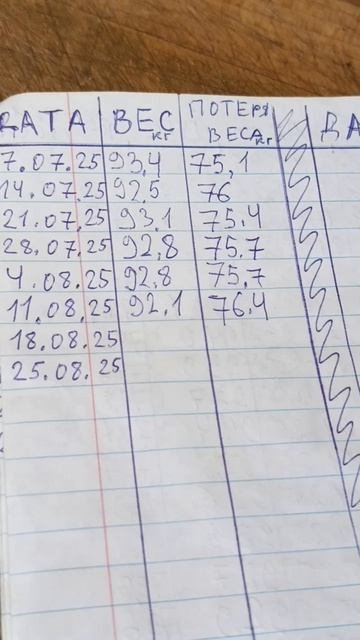 ДАТА ВЕС кг ПОТЕРЯ ВЕСА кг ДА
7.07.25 93,4 75,1
14.07.25 92.5 76
21.07.25 93.1 75.4
28.07.25 92,8 75.7
4.08.25 92.8 75,7
11.08.25 92.1 76.4
18.08.25
25.08.25